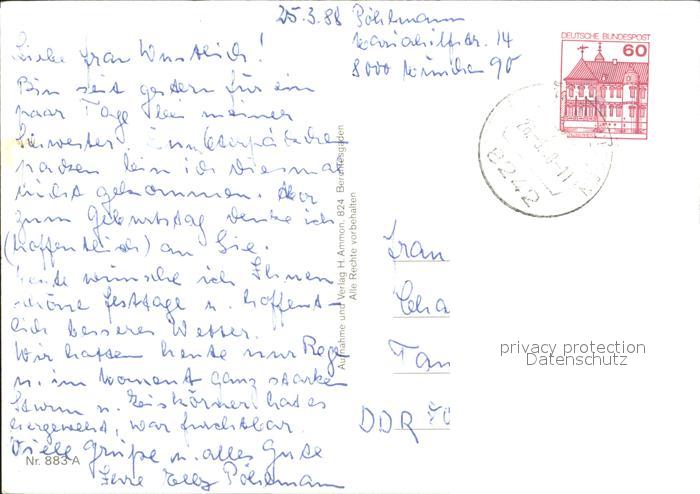 25.3.88 Pöhlmann
Mariahilfstr. 14
8000 München 90
DEUTSCHE BUNDESPOST
60
8242
Liebe Frau
Bin seit gestern für ein
paar Tage bei meiner
Schwester. Zum Osterpäckchen
packen bin ich diesmal
nicht gekommen. Aber
zum Geburtstag denke ich
(hoffentlich) an Sie.
Heute wünsche ich Ihnen
schöne Festtage u. hoffent-
lich besseres Wetter.
Wir hatten heute nur Regen
u. im Moment ganz starken
Sturm u. Eiskörner hat es
hergeweht, war furchtbar.
Viele Grüße u. alles Gute
Ihre Elly Pöhlmann
Nr. 883 A
Aufnahme und Verlag H. Ammon, 824 Berchtesgaden
Alle Rechte vorbehalten
Frau
DDR
privacy protection
Datenschutz